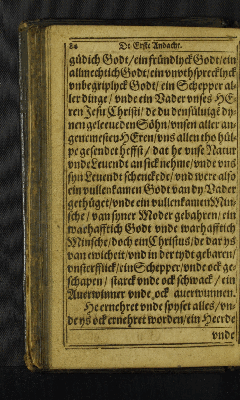 84 De Erste Andacht.
güdich Godt / ein fründlyck Godt / ein
allmechtich Godt / ein vnvthspreecklyck
vnbegriplyck Godt / ein Schepper al-
ler dinge / vnde ein Vader vnses HE-
ren Jesu Christi / de du densülvige dy-
nen geleeueden Söhn / vnsen aller an-
genemesten HEren / vns allen tho hül-
pe gesendet heffst / dat he vnse Natur
vnde Leuendt an sick nehme / vnde vns
syn Leuendt schenckede / vnd were also
ein vullenkamen Godt van dy Vader
gethüget / vnde ein vullenkamen Min-
sche / van syner Moder gebahren / ein
waehafftich Godt vnde warhafftich
Minsche / doch ein Christus / de dar ys
van ewicheit / vnd in der tydt gebaren /
vnsterflick / ein Schepper / vnde ock ge-
schapen / starck vnde ock schwack / ein
Auerwinner vnde ock auerwunnen.
He ernehret vnde spyset alles / vn-
de ys ock ernehret worden / ein Heerde
vnde